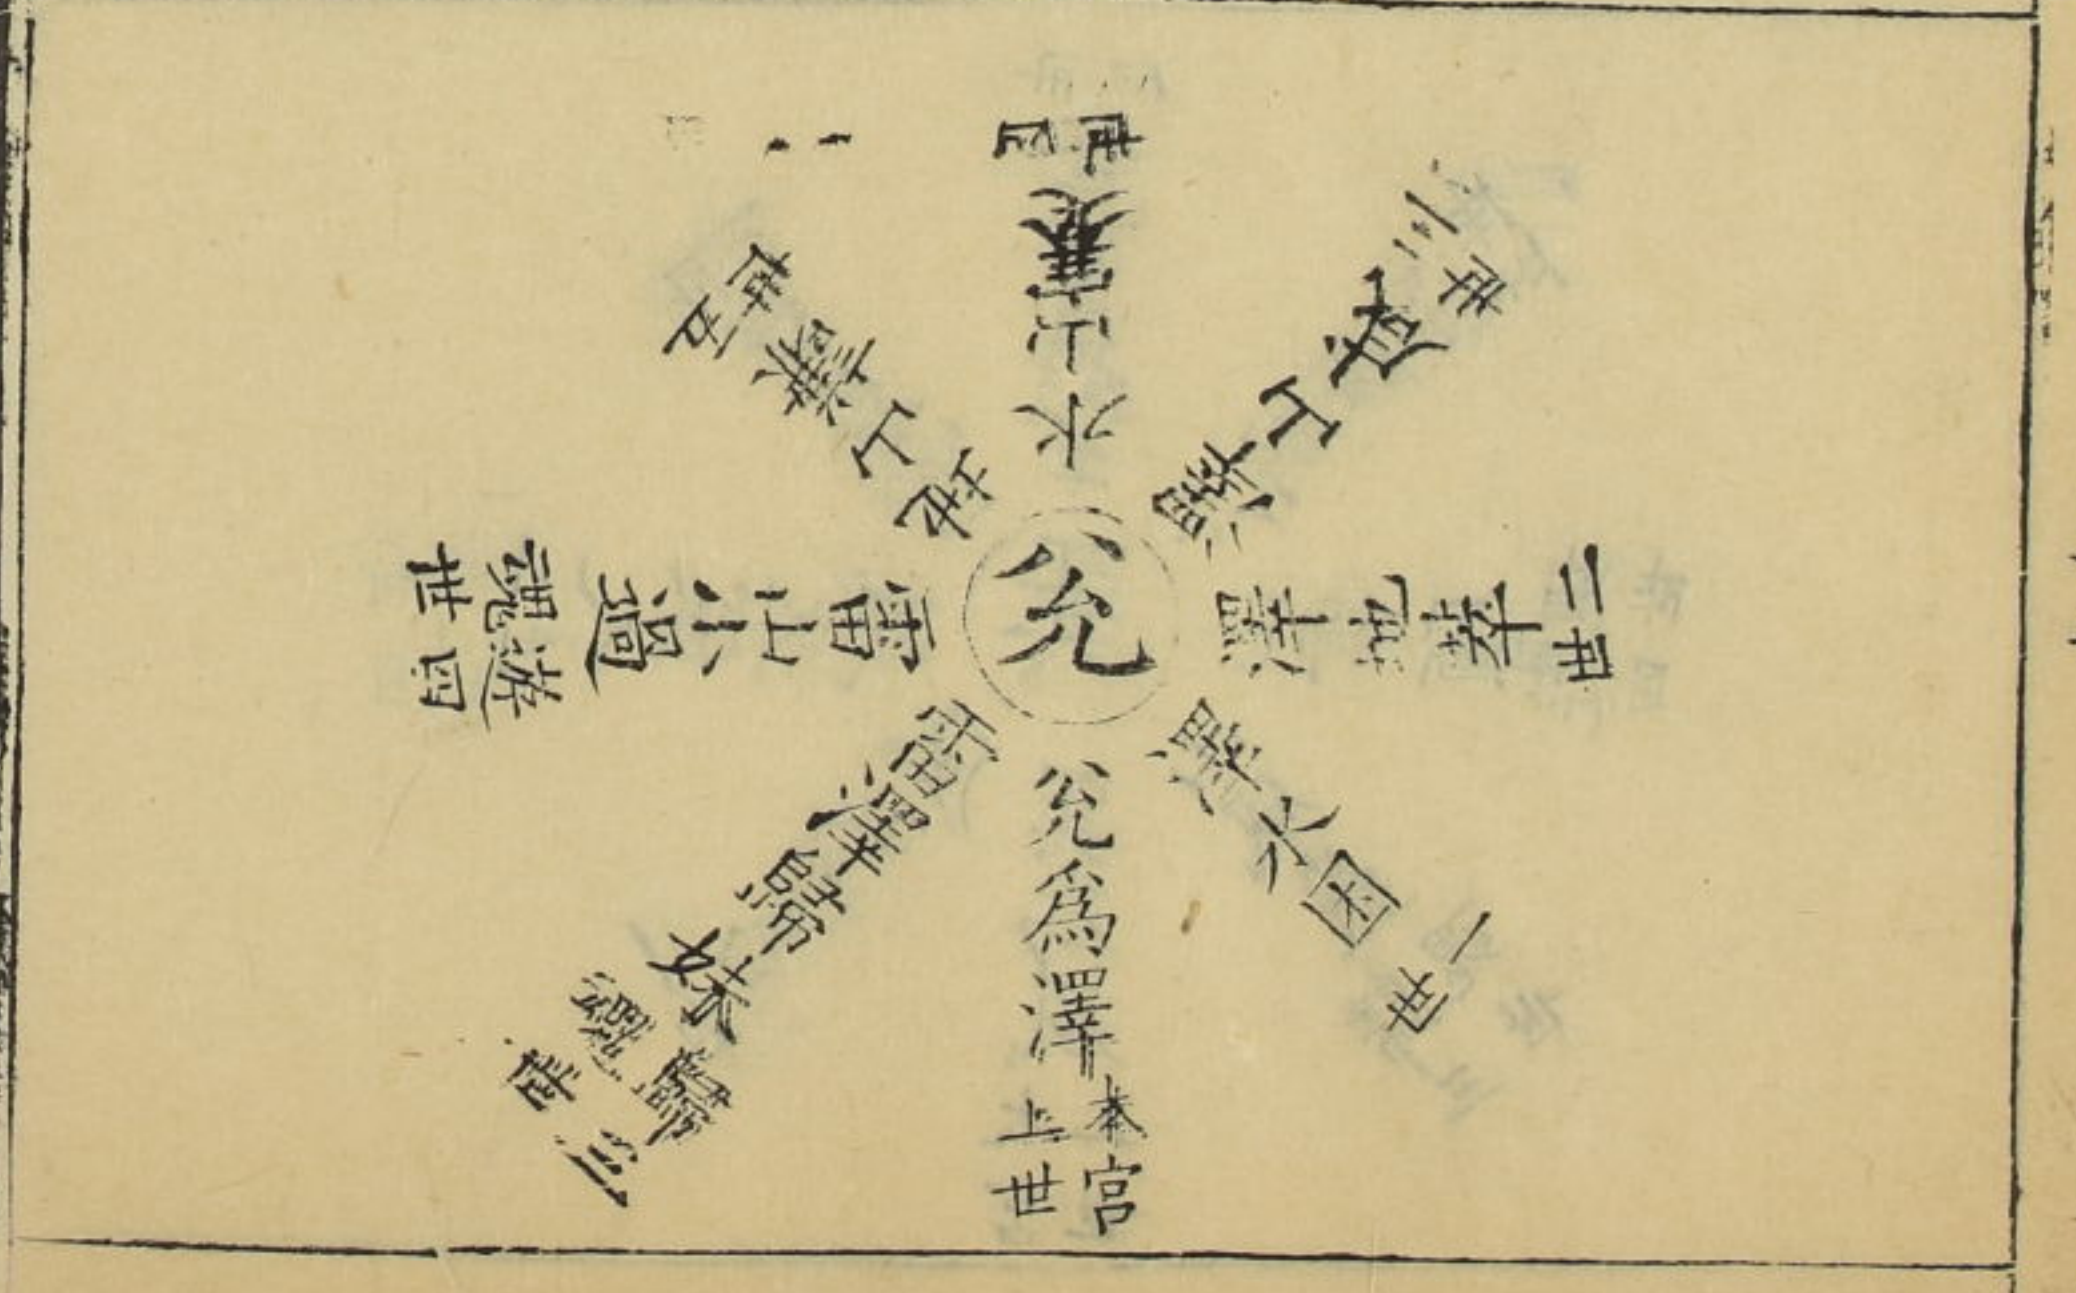 兊
兊爲澤
本宮
上世
澤水困
一世
澤地萃
二世
澤山咸
三世
水山蹇
四世
地山謙
五世
雷山小過
遊魂
四世
雷澤歸妹
歸魂
三世